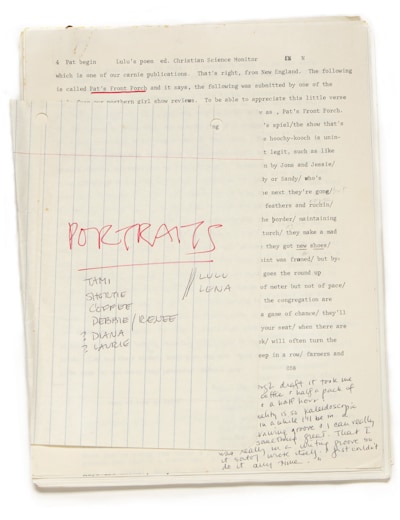 & Pat begin lulu's poem ed. Christian Science Monitor
which is one of our carnie publications. That's right, from New England. The following
is called Pat's Front Porch and it says, the following was submitted by one of the
northern girl show reviews. To be able to appreciate this little verve
as , Pat's Front Porch.
's spiel/the show's that's
hoochy-kooch is unin-
t legit, such as like
n by Joms and Jessie/
dy or Sandy/ who's
he next they're gong/
feathers and
he border/ maintaining
torch/ they make a mad
they got new shoes/
oint was framed/ but by-
goes the round up
of meter but not of pace/
the congregation are
a game of chance/ they'll
your seat/ when there are
ok/ will often turn the
eep in a row/ farmers and
PORTRAITS
TAMI
SHORTIE
COFFEE
DEBBIE/RENEE
? DIANA
? LAURIE
// LULU
LENA
draft it took me
coffee + half a pack of
+ a half hour
reality is so kaleidoscopic
in a while I'll be in a
groove + I can really
something great. That I
was really in a writing groove so
it wrote itself + just couldn't
do it any time. "